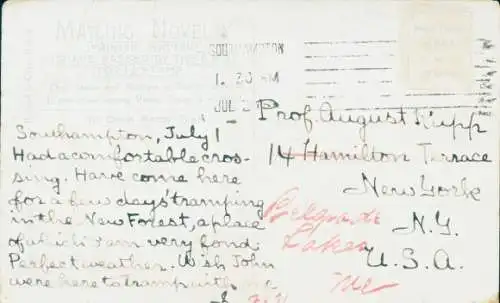 SOUTHAMPTON
1. 20 AM
JUL 2
Prof. August Rupp
14 Hamilton Terrace
New York
N.Y.
U.S.A.
Belgrade
Lakes
Me
Southampton, July 1
Had a comfortable cros-
sing. Have come here
for a few days' tramping
in the New Forest, a place
of which I am very fond.
Perfect weather. Wish John
were here to tramp with